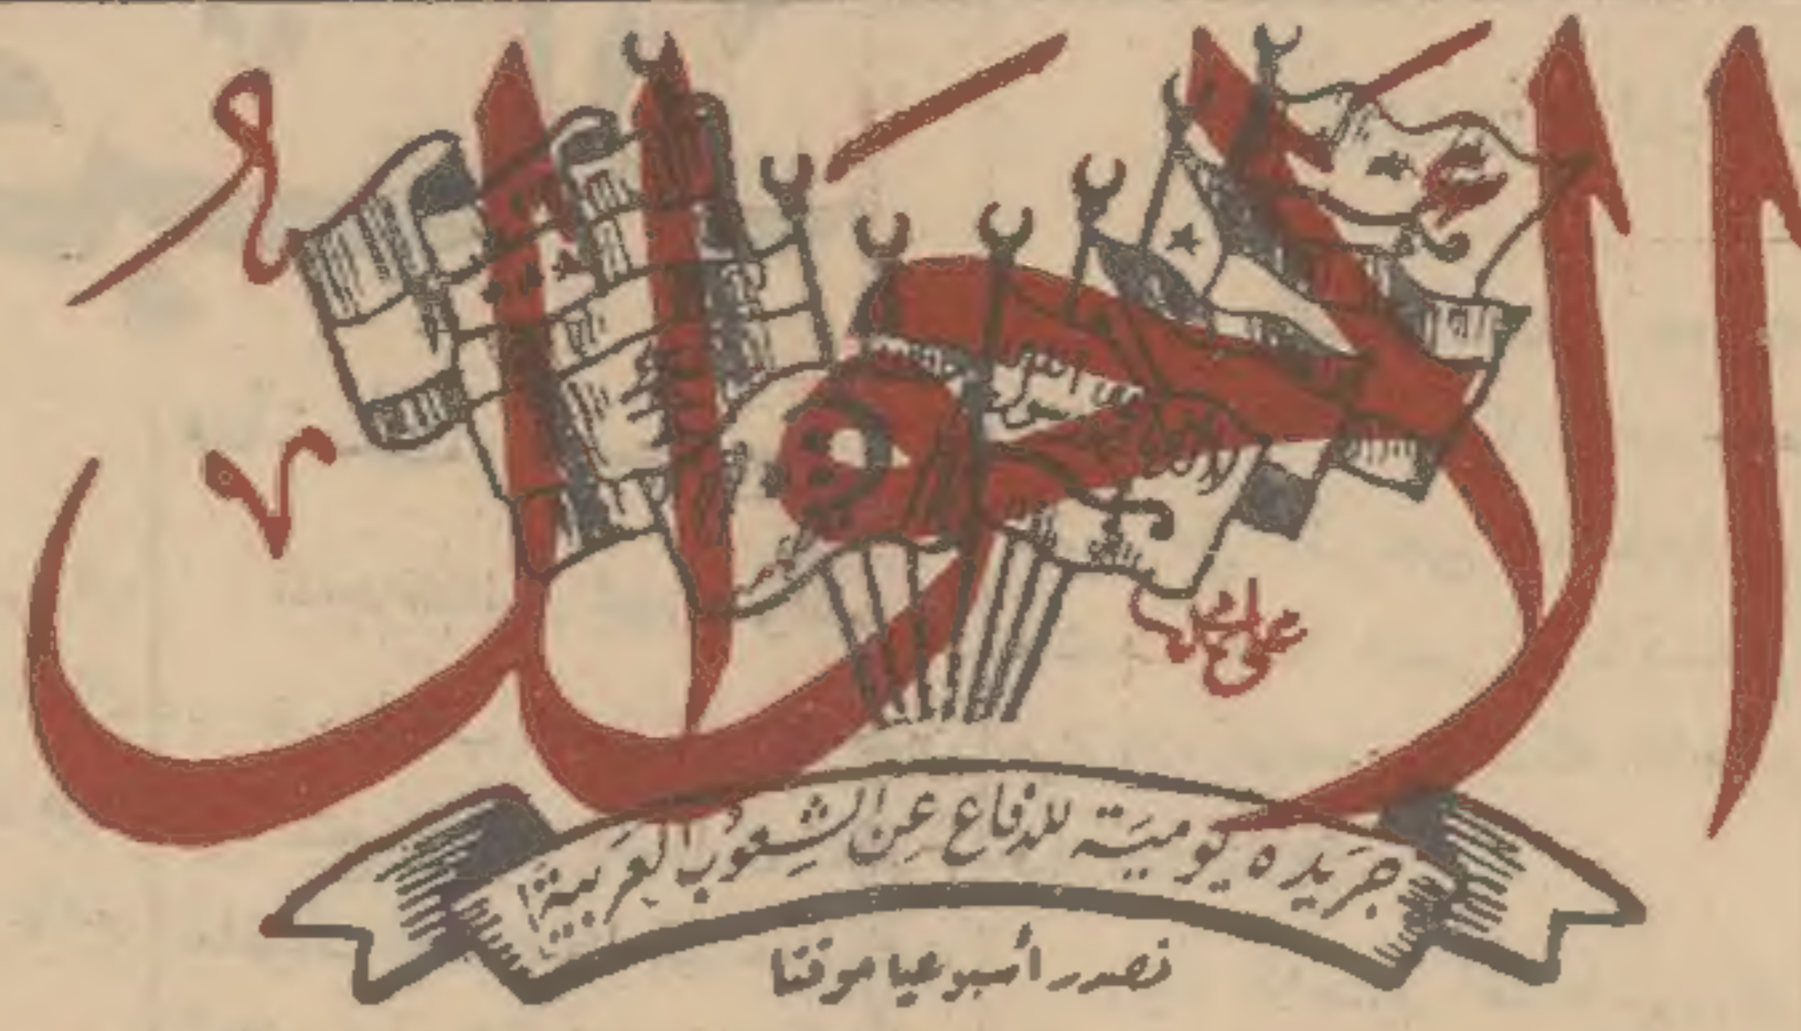 الاحوال
جريدة يومية للدفاع عن الشعوب العربية
تصدر أسبوعيا موقتا